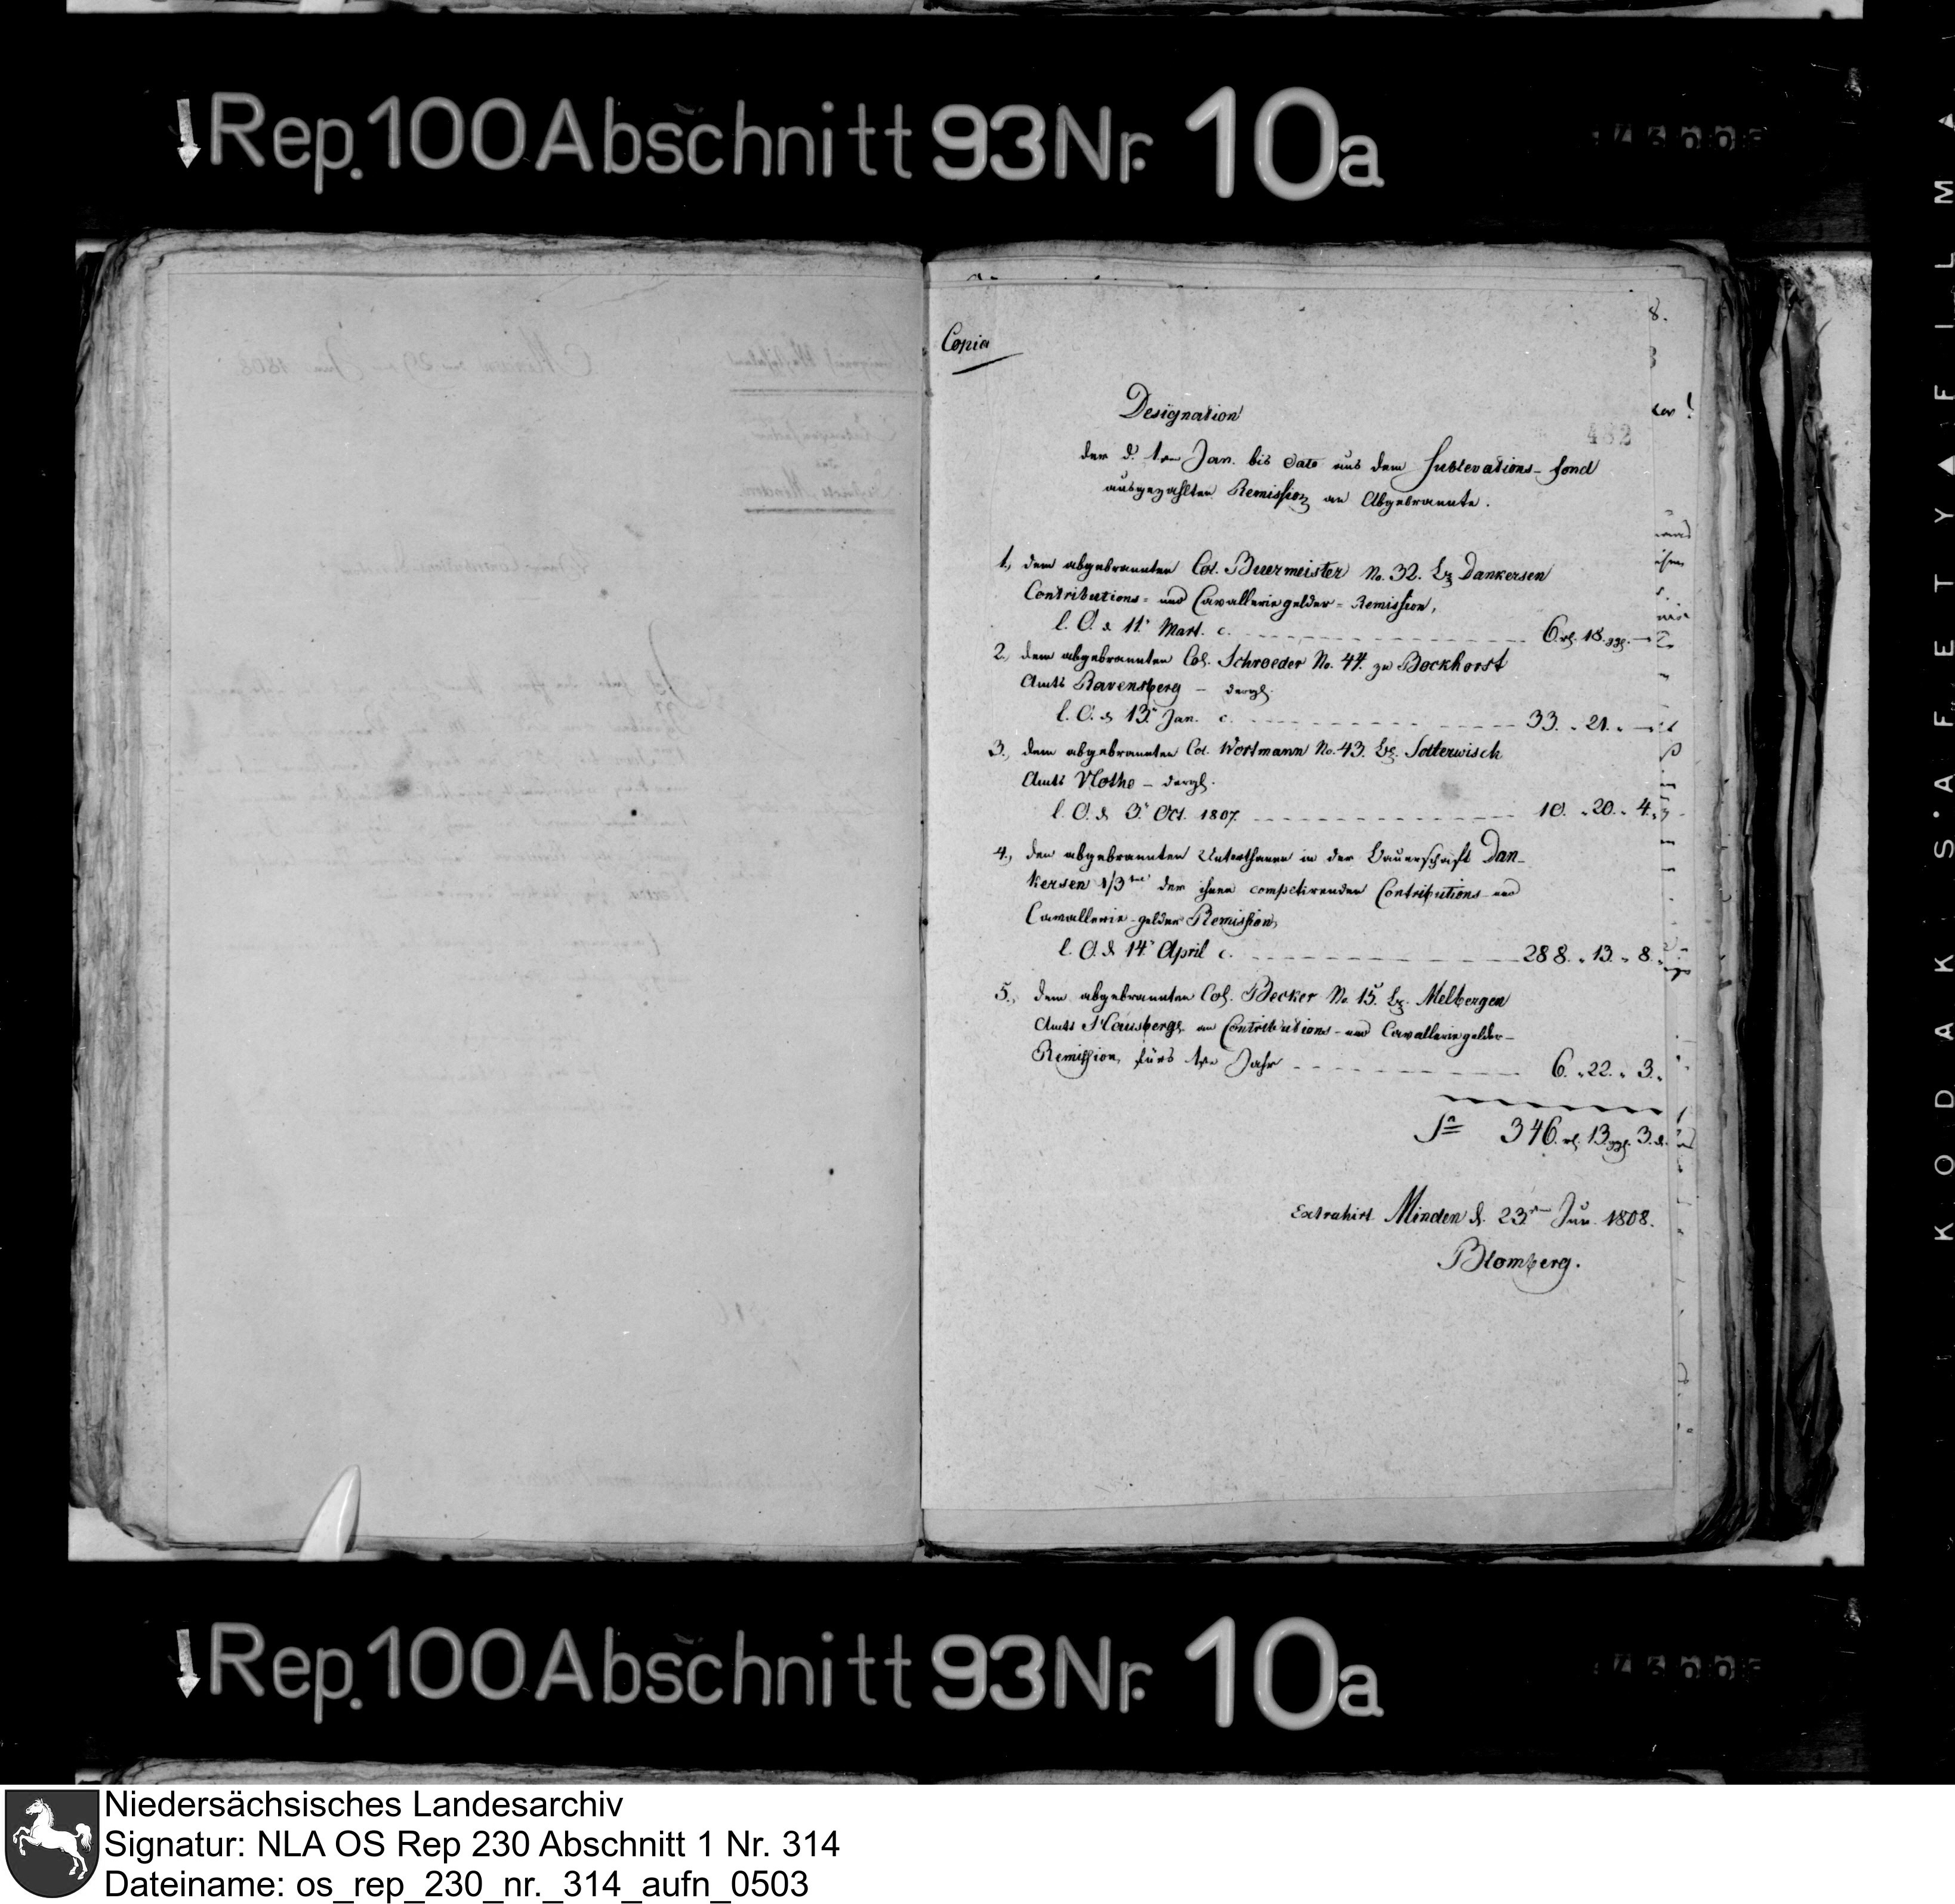 ↓Rep. 100 Abschnitt 93 Nr. 10a
8.
Copia
482
Designation
der d. 1ten Jan. bis dato aus dem Sublevations-fond
ausgezahlten Remission an Abgebrannte.
1., dem abgebrannten Col. Buermeister No. 32. Bs. Dankersen
Contributions- und Cavalleriegelder-Remission,
l. O. d. 11t Mart. c. 6. rh. 18. ggr. —
2., dem abgebrannten Col. Schroeder No. 44. zu Bockhorst
Amts Ravensberg – dergl.
l. O. d. 13t Jan. c. 33. " 21. " —
3., dem abgebrannten Col. Wortmann No. 43. Bs. Solterwisch
Amts Vlotho – dergl.
l. O. d. 3t Oct. 1807. 10. " 20. " 4. "
4., den abgebrannten Unterthanen in der Bauerschaft Dan-
kersen 1/3tel der ihnen competirenden Contributions- und
Cavallerie-gelder Remission,
l. O. d. 14t April c. 288. " 13. " 8. "
5., dem abgebrannten Col. Becker No. 15. Bs. Melbergen
Amts Hausberge an Contributions- und Cavalleriegelder-
Remission, fürs 1te Jahr 6. " 22. " 3. "
Sa 346. rh. 13. ggr. 3. d.
Extrahirt Minden d. 23ten Jun. 1808.
Blomberg.
↓Rep. 100 Abschnitt 93 Nr. 10a
KODAK SAFETY FILM
Niedersächsisches Landesarchiv
Signatur: NLA OS Rep 230 Abschnitt 1 Nr. 314
Dateiname: os_rep_230_nr._314_aufn_0503